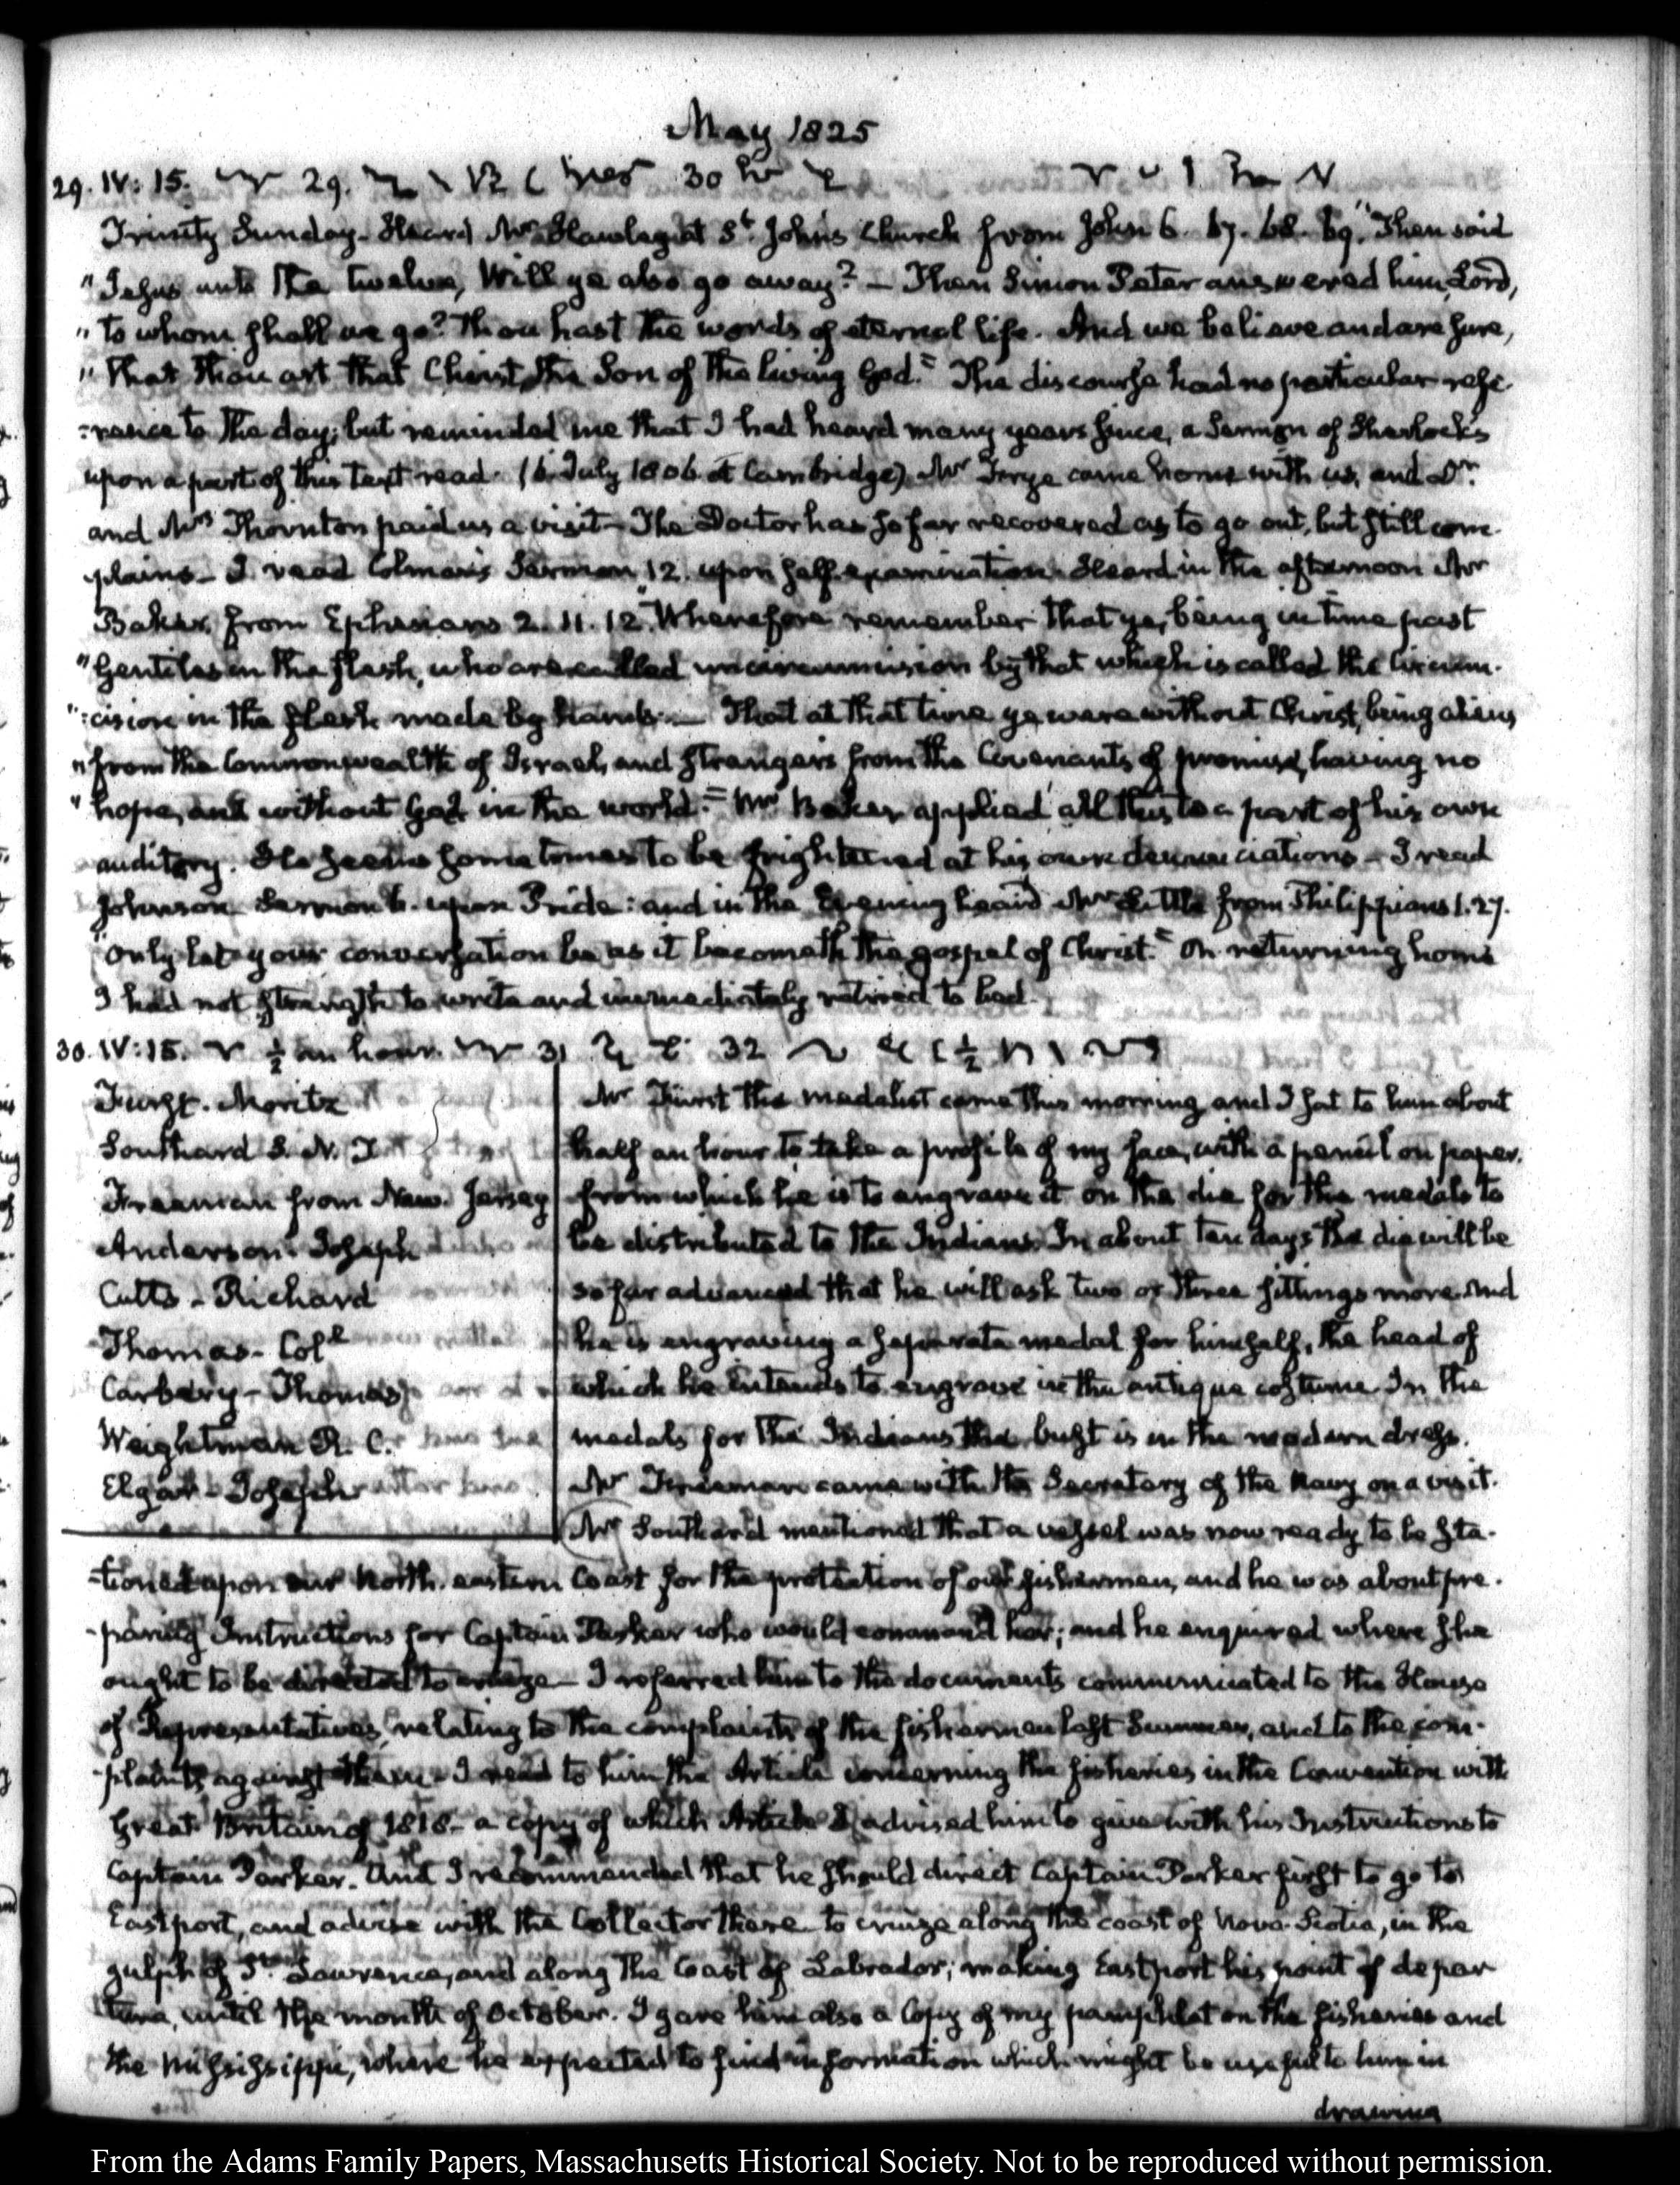 May 1825
29. IV: 15. 29. 30
Trinity Sunday. Heard Mr Hawley at St. John's Church from John 6. 67. 68. 69. "Then said
"Jesus unto the twelve, Will ye also go away? — Then Simon Peter answered him, Lord,
"to whom shall we go? Thou hast the words of eternal life. And we believe and are sure,
"that thou art that Christ, the Son of the living God." The discourse had no particular refe-
-rence to the day; but reminded me that I had heard many years since, a Sermon of Sherlock's
upon a part of this text read. (6. July 1806 at Cambridge) Mr Frye came home with us, and Dr.
and Mrs Thornton paid us a visit — The Doctor has so far recovered as to go out, but still com-
plains — I read Colman's Sermon 12. upon self-examination. Heard in the afternoon Mr
Baker, from Ephesians 2. 11. 12. "Wherefore remember that ye, being in time past
"Gentiles in the flesh, who are called uncircumcision by that which is called the Circum-
":cision in the flesh made by hands — That at that time ye were without Christ, being aliens
"from the Commonwealth of Israel, and strangers from the Covenants of promise, having no
"hope, and without God in the world." Mr Baker applied all this to a part of his own
auditory. He seems sometimes to be frightened at his own denunciations — I read
Johnson Sermon 6. upon Pride: and in the Evening heard Mr Little from Philippians 1. 27.
"Only let your conversation be as it becometh the gospel of Christ." On returning home
I had not strength to write and immediately retired to bed.
30. IV: 15. ½ an hour. 31 32 ½
Furst. Moritz
Southard S. N. J
Freeman from New. Jersey
Anderson. Joseph
Cutts - Richard
Thomas - Coll
Carbery - Thomas
Weightman R. C.
Elgar - Joseph
Mr Furst the medalist came this morning and I sat to him about
half an hour to take a profile of my face, with a pencil on paper.
from which he is to engrave it on the die for the medals to
be distributed to the Indians. In about ten days the die will be
so far advanced that he will ask two or three sittings more. And
he is engraving a separate medal for himself, the head of
which he intends to engrave in the antique costume. In the
medals for the Indians the bust is in the modern dress.
Mr Freeman came with the Secretary of the Navy on a visit.
Mr Southard mentioned that a vessel was now ready to be sta-
-tioned upon our North. eastern Coast for the protection of our fishermen, and he was about pre-
-paring Instructions for Captain Parker who would command her; and he enquired where she
ought to be directed to cruize — I referred him to the documents communicated to the House
of Representatives, relating to the complaints of the fishermen last Summer, and to the com-
-plaints against them — I read to him the Article concerning the fisheries in the Convention with
Great Britain of 1818 — a copy of which Article I advised him to give with his Instructions to
Captain Parker. And I recommended that he should direct Captain Parker first to go to
Eastport, and advise with the Collector there to cruize along the coast of Nova-Scotia, in the
gulph of St. Lawrence, and along the Coast of Labrador; making Eastport his point of depar
ture, until the month of October. I gave him also a Copy of my pamphlet on the fisheries and
the Mississippi, where he expected to find information which might be useful to him in
drawing
From the Adams Family Papers, Massachusetts Historical Society. Not to be reproduced without permission.